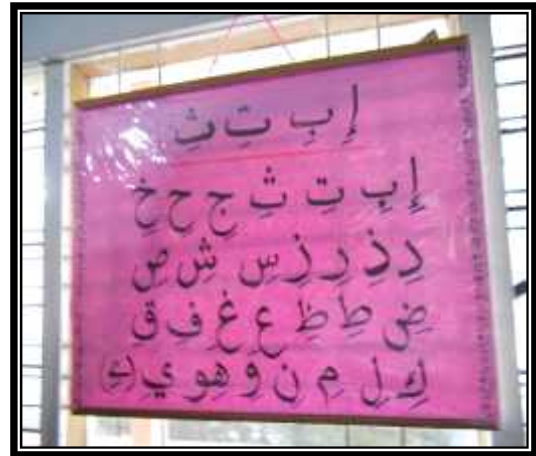 إِ بِ تِ ثِ
إِ بِ تِ ثِ جِ حِ خِ
دِ ذِ رِ زِ سِ شِ صِ
ضِ طِ ظِ عِ غِ فِ قِ
كِ لِ مِ نِ وِ هِ وِ يِ (ءِ)